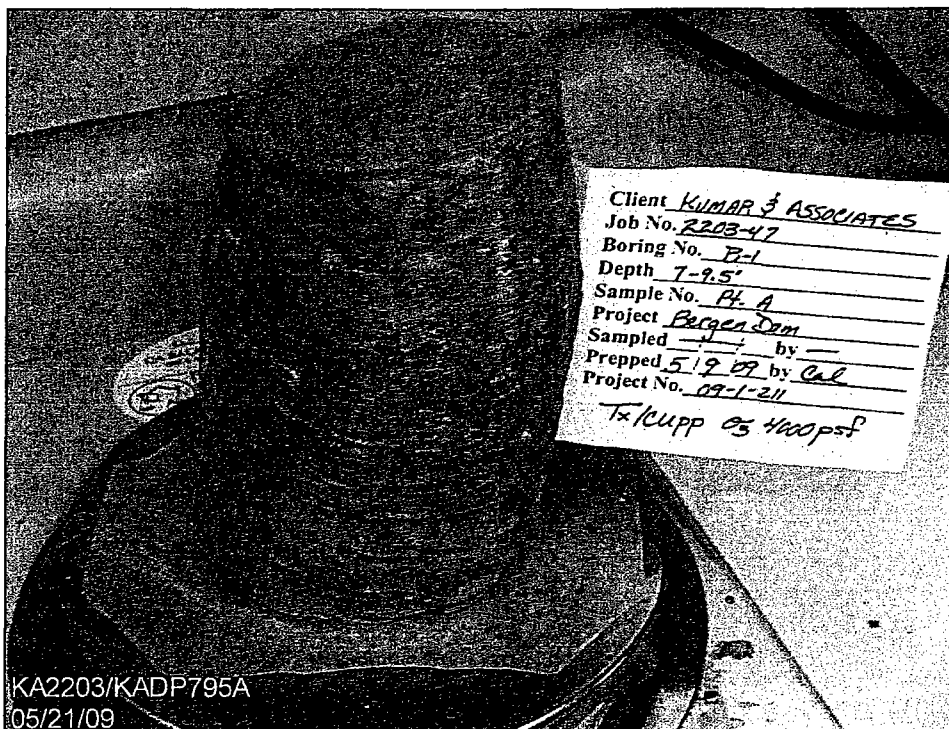 Client KUMAR & ASSOCIATES
Job No. 2203-47
Boring No. B-1
Depth 7-9.5'
Sample No. Pt. A
Project Bergen Dam
Sampled — by —
Prepped 5/9/09 by Cal
Project No. 09-1-211
Tx/CUPP σ3 4000 psf
KA2203/KADP795A
05/21/09